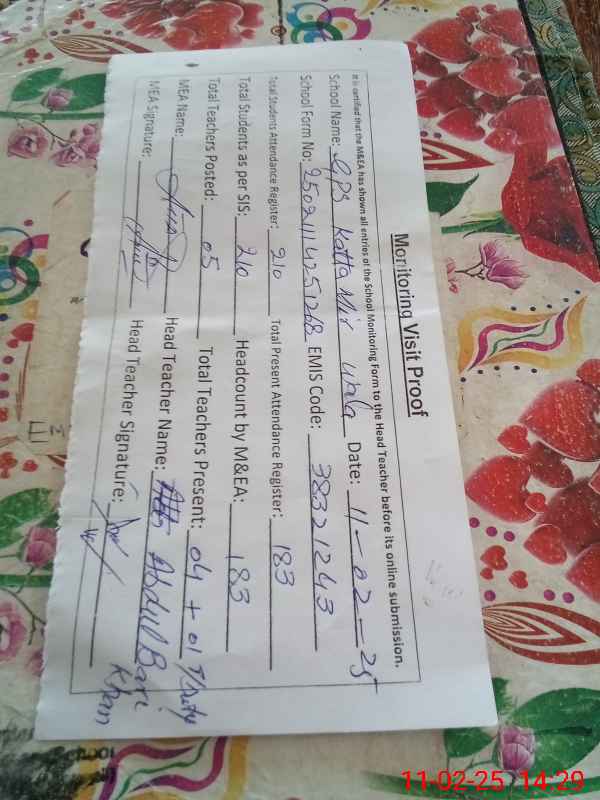 Monitoring Visit Proof
It is certified that the M&EA has shown all entries of the School Monitoring Form to the Head Teacher before its online submission.
School Name: GPS Kotta Mir wala Date: 11-02-25
School Form No: EMIS Code: 38321243
Total Students Attendance Register: 210 Total Present Attendance Register: 183
Total Students as per SIS: 210 Headcount by M&EA: 183
Total Teachers Posted: 05 Total Teachers Present: 04 + 01
MEA Name: Head Teacher Name: Abdul Bari Khan
MEA Signature: Head Teacher Signature:
11-02-25 14:29